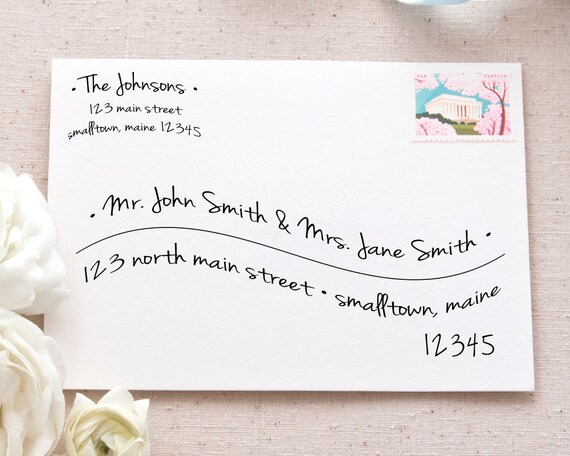 • The Johnsons •
123 main street
smalltown, maine 12345
USA FOREVER
• Mr. John Smith & Mrs. Jane Smith •
123 north main street • smalltown, maine
12345